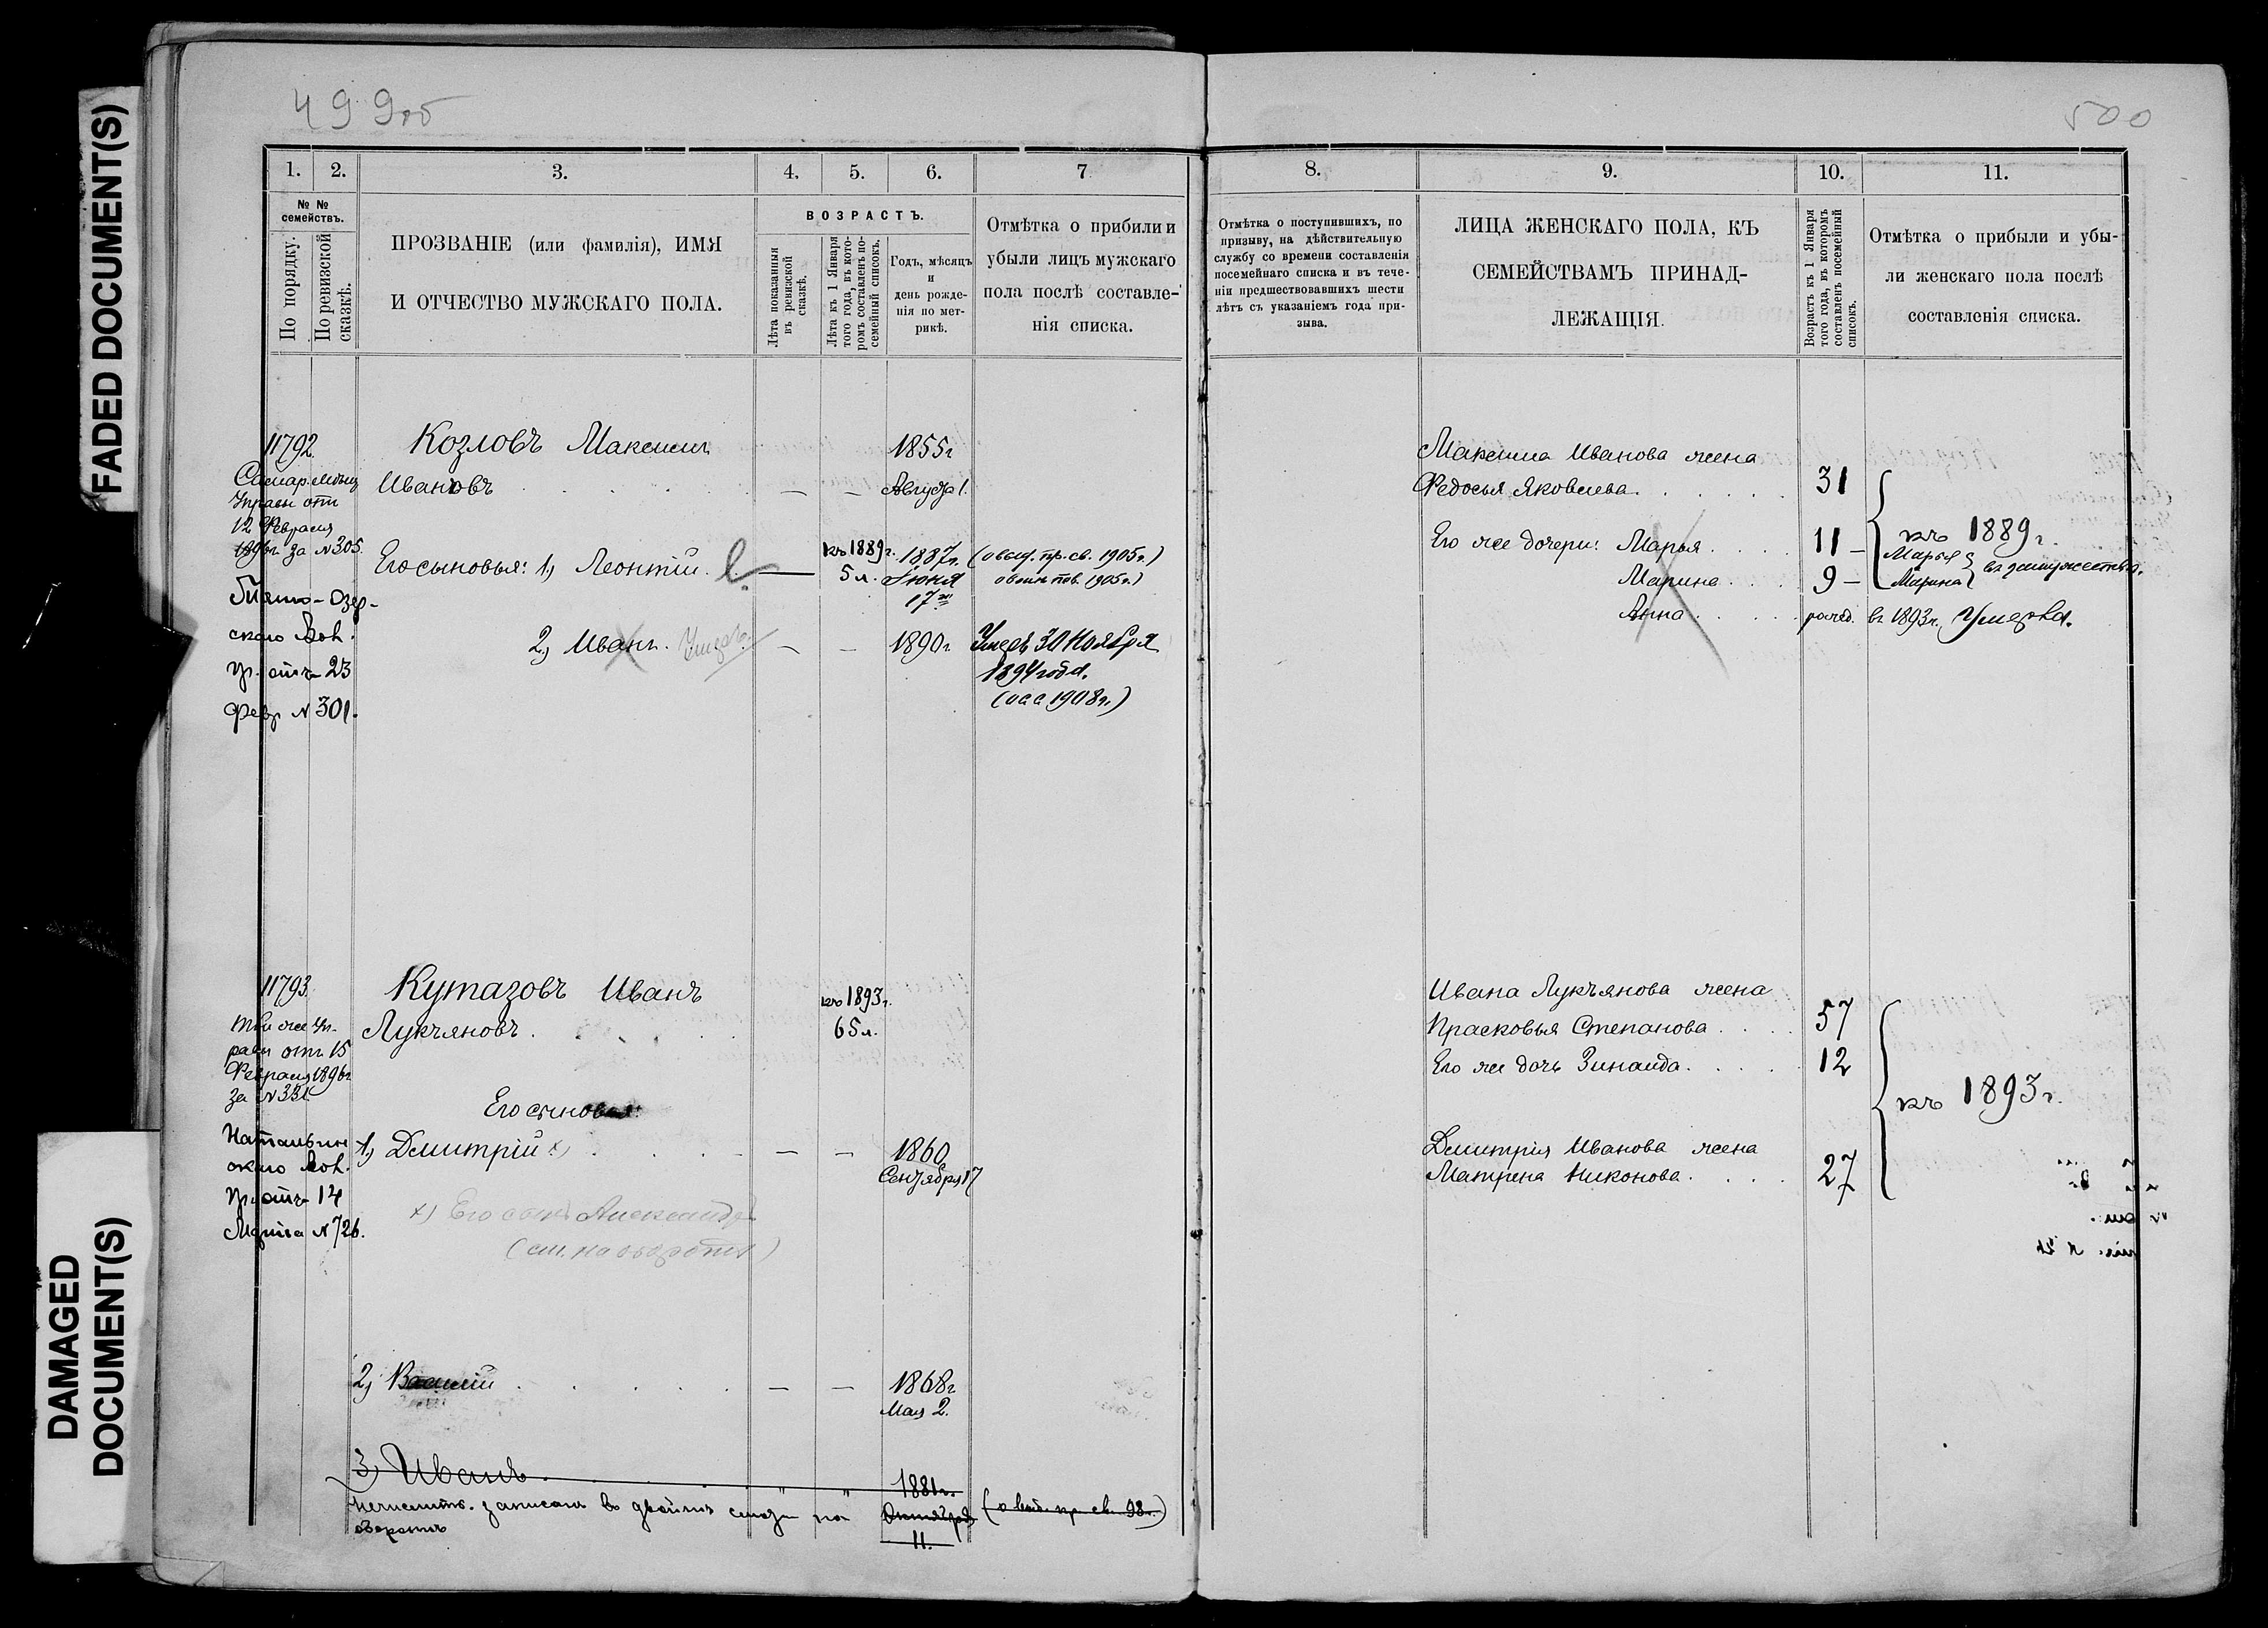 FADED DOCUMENT(S)
DAMAGED
DOCUMENT(S)
499об
1. 2. 3. 4. 5. 6. 7
№ №
семействъ.
По порядку.
По ревизской
сказкѣ.
ПРОЗВАНІЕ (или фамилія), ИМЯ
И ОТЧЕСТВО МУЖСКАГО ПОЛА.
ВОЗРАСТЪ.
Лѣта показанныя
въ ревизской
сказкѣ.
Лѣта къ 1 Января
того года, въ кото-
ромъ составленъ по-
семейный списокъ.
Годъ, мѣсяцъ
и
день рожде-
нія по мет-
рикѣ.
Отмѣтка о прибили и
убыли лицъ мужскаго
пола послѣ составле-
нія списка.
11792.
Самар. мѣщ.
Управы отъ
12 Февраля
1896г за №305.
Озер-
скаго Вол.
пр. отъ 23
Февр №301.
Козловъ Максимъ
Ивановъ — — 1855г
Августа 1.
Его сыновья: 1) Леонтій — къ 1889г. 5 л. 1887г. Іюня 17го
(о выд. пр. св. 1905г.)
1905г.)
2) Иванъ. Умеръ — — 1890г Умеръ 30 Ноября
1894 года.
1908г.)
11793.
той же Уп-
равы отъ 15
Февраля 1896г
за №331
Вол.
пр. отъ 14
Марта №726.
Кутазовъ Иванъ
Лукъяновъ къ 1893г.
65 л.
Его сыновья:
1) Дмитрій х) — — 1860
Сентября 17
х) Его сынъ Александръ
(см. на оборотѣ)
2) Василій — — 1868г
Мая 2.
3) Иванъ " " 1881г.
Октября
11.
(о выд. пр. св. 98г.)
записанъ въ на
оборотѣ
500
8. 9. 10. 11.
Отмѣтка о поступившихъ, по
призыву, на дѣйствительную
службу со времени составленія
посемейнаго списка и въ тече-
ніи предшествовавшихъ шести
лѣтъ съ указаніемъ года при-
зыва.
ЛИЦА ЖЕНСКАГО ПОЛА, КЪ
СЕМЕЙСТВАМЪ ПРИНАД-
ЛЕЖАЩІЯ.
Возрастъ къ 1 Января
того года, въ которомъ
составленъ посемейный
списокъ.
Отмѣтка о прибыли и убы-
ли женскаго пола послѣ
составленія списка.
Максима Иванова жена
Федосья Яковлева 31
Его же дочери: Марья 11 — къ 1889г.
Марина 9 — Марья Марина въ замужествѣ.
Анна рожд. въ 1893г. Умерла.
Ивана Лукъянова жена
Прасковья Степанова 57
Его же дочь Зинаида 12
къ 1893г.
Дмитрія Иванова жена
Матрена Никонова 27